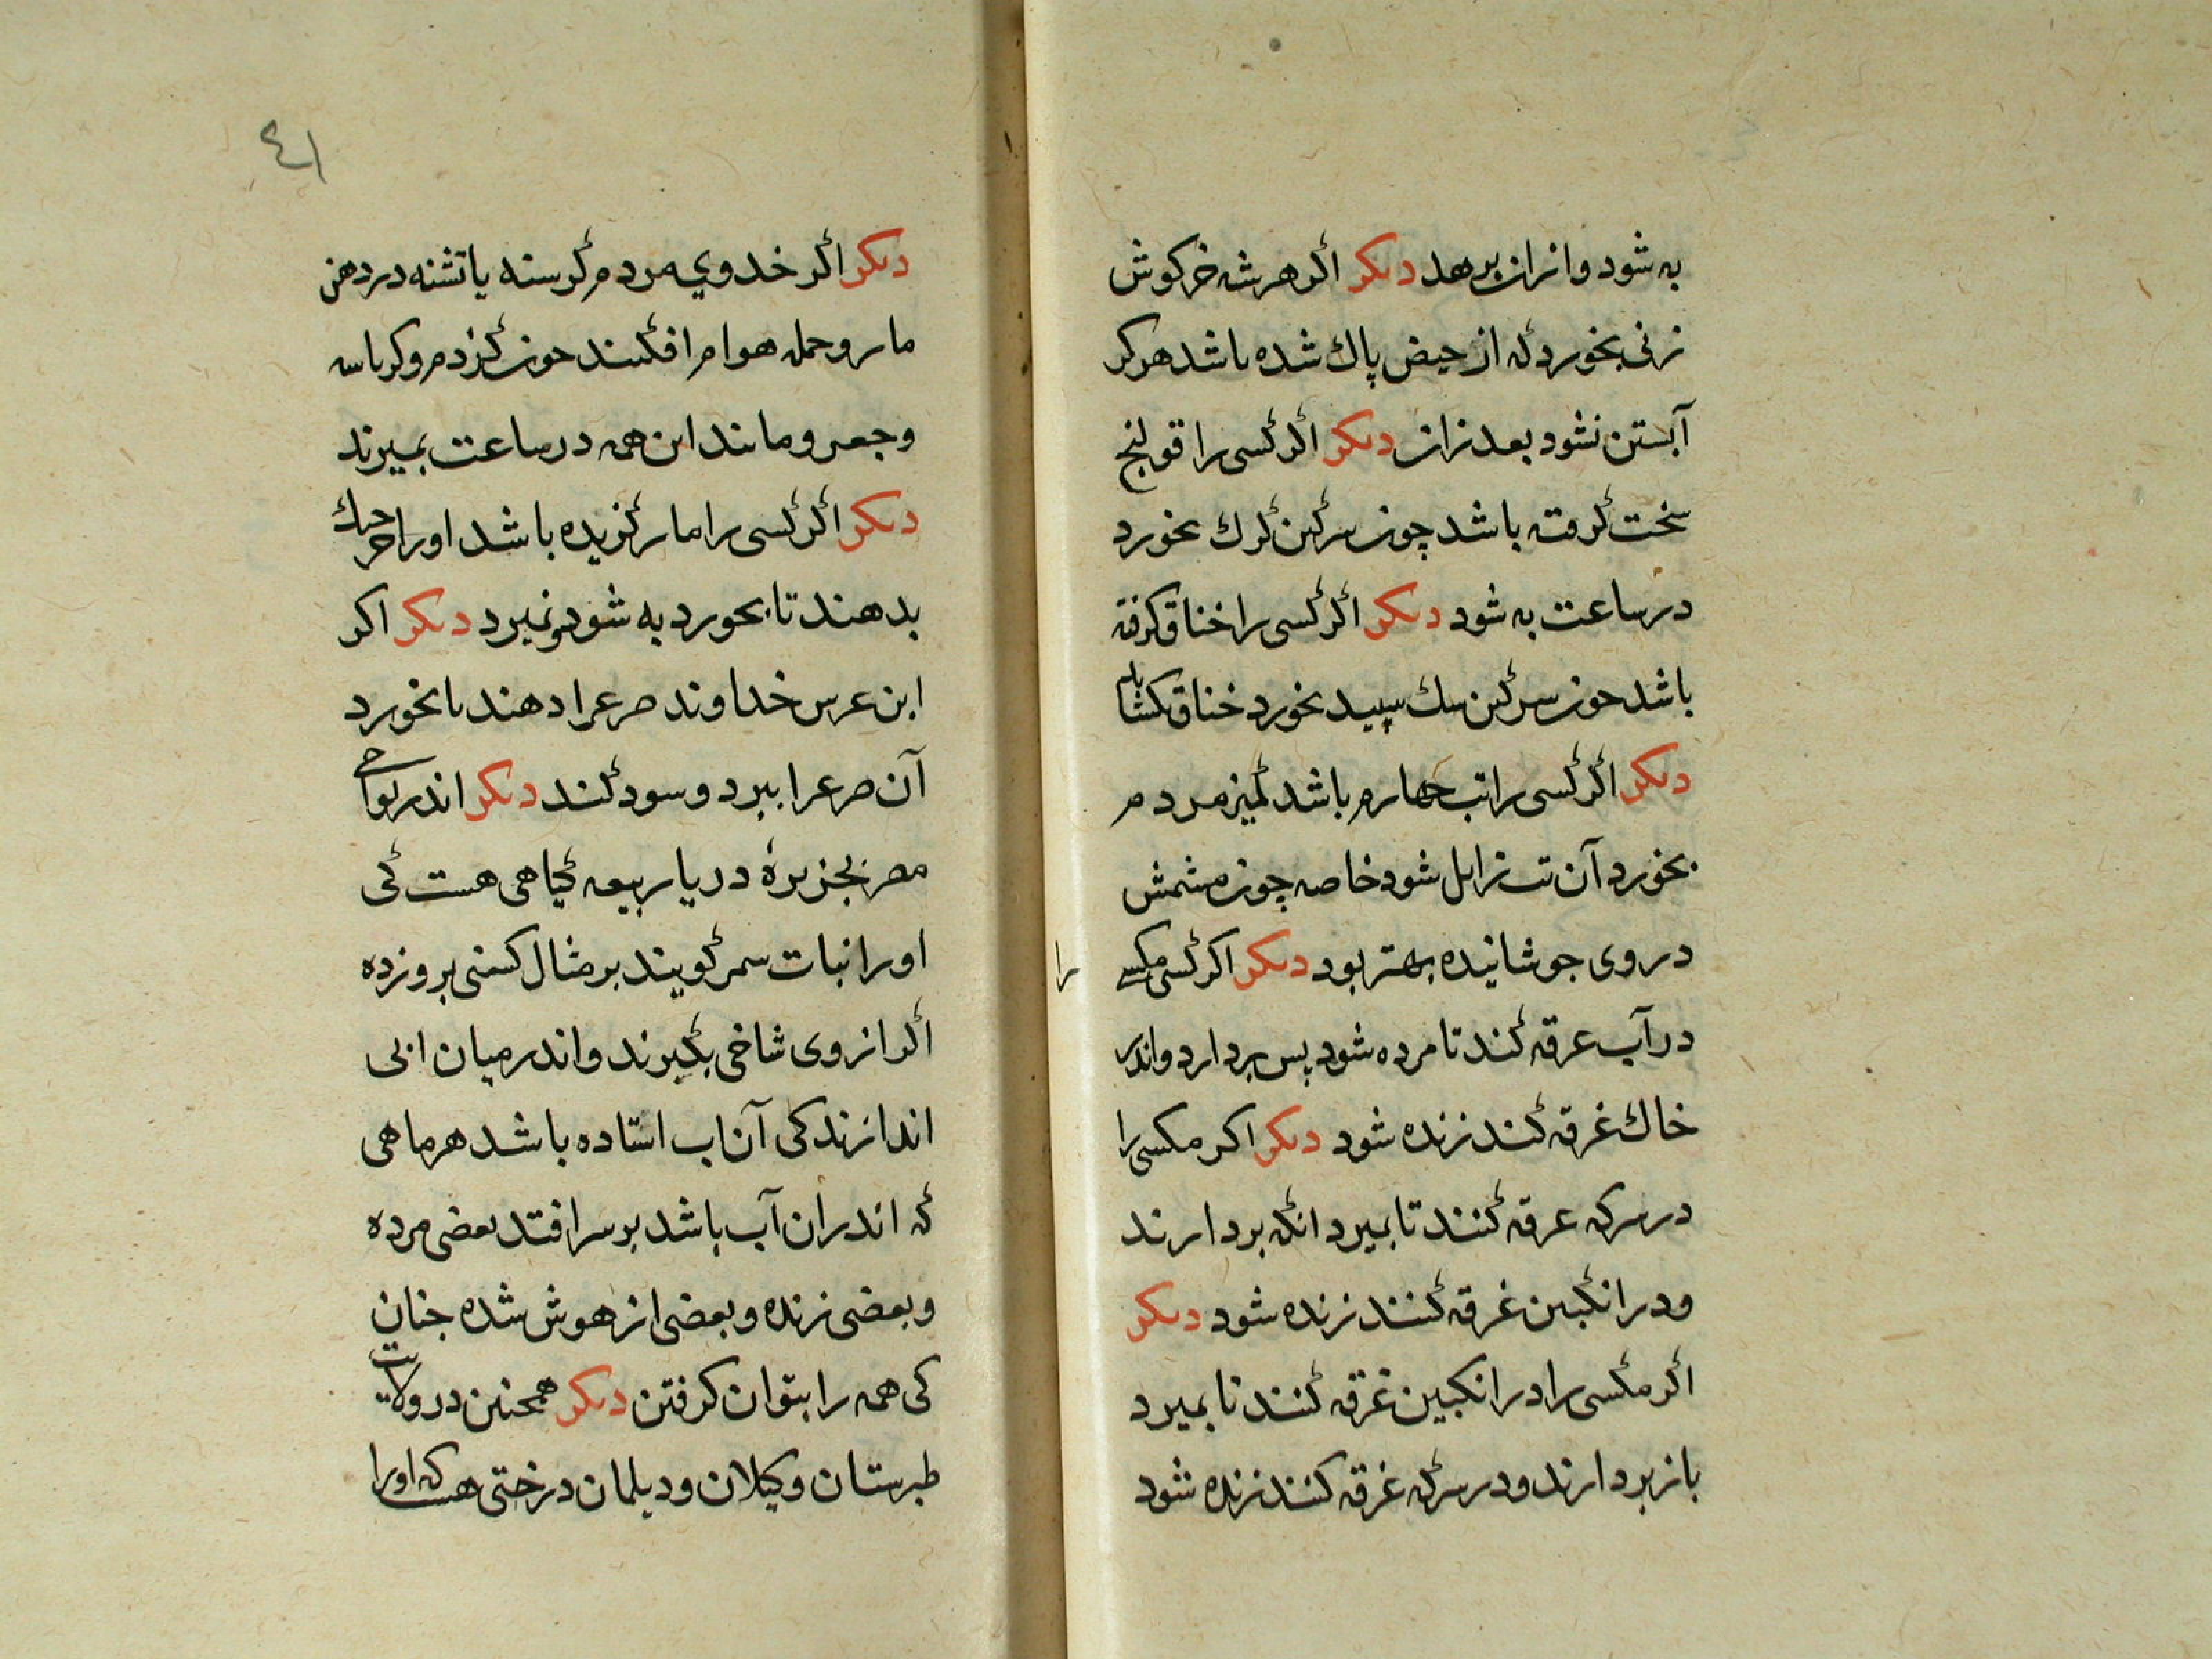 به شود و ازان برهد دیکر اکر هرشه خرکوش
زنی بخورد که از حیض پاك شده باشد هرکز
آبستن نشود بعد ازان دیکر اکر کسی را قولنج
سخت کرفته باشد چون سرکین کرك بخورد
در ساعت به شود دیکر اکر کسی را خناق کرفته
باشد چون سرکین سك سپید بخورد خناق بکشاید
دیکر اکر کسی را تب چهارم باشد کمیز مردم
بخورد آن تب زایل شود خاصه چون مشمش
در وی جوشانیده بهتر بود دیکر اکر کسی مکسی را
در آب غرقه کند تا مرده شود پس بردارد و اندر
خاك غرقه کند زنده شود دیکر اکر مکسی را
در سرکه غرقه کنند تا بمیرد انکه بردارند
و در انکبین غرقه کنند زنده شود دیکر
اکر مکسی را در انکبین غرقه کنند تا بمیرد
باز بردارند و در سرکه غرقه کنند زنده شود
٤١
دیکر اکر خدوی مردم کرسنه یا تشنه در دهن
مار و جمله هوام افکنند چون کزدم و کرباسه
و جعل و مانند این همه در ساعت بمیرند
دیکر اکر کسی را مار کزیده باشد او را
بدهند تا بخورد به شود و نمیرد دیکر اکر
ابن عرس خداوند صرع را دهند تا بخورد
آن صرع را ببرد و سود کند دیکر اندر نواحی
مصر بجزیرهٔ دریا ربیعه کیاهی هست کی
او را نبات سمر کویند بر مثال کسنی بروزده
اکر از وی شاخی بکیرند و اندر میان آبی
اندازند کی آن آب استاده باشد هر ماهی
که اندران آب باشد بر سر افتد بعضی مرده
و بعضی زنده و بعضی از هوش شده چنان
کی همه را بتوان کرفتن دیکر همچنین در ولایت
طبرستان و کیلان و دیلمان درختی هست که او را